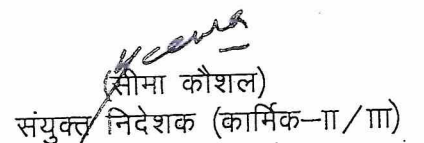 (सीमा कौशल)
संयुक्त निदेशक (कार्मिक–II/III)